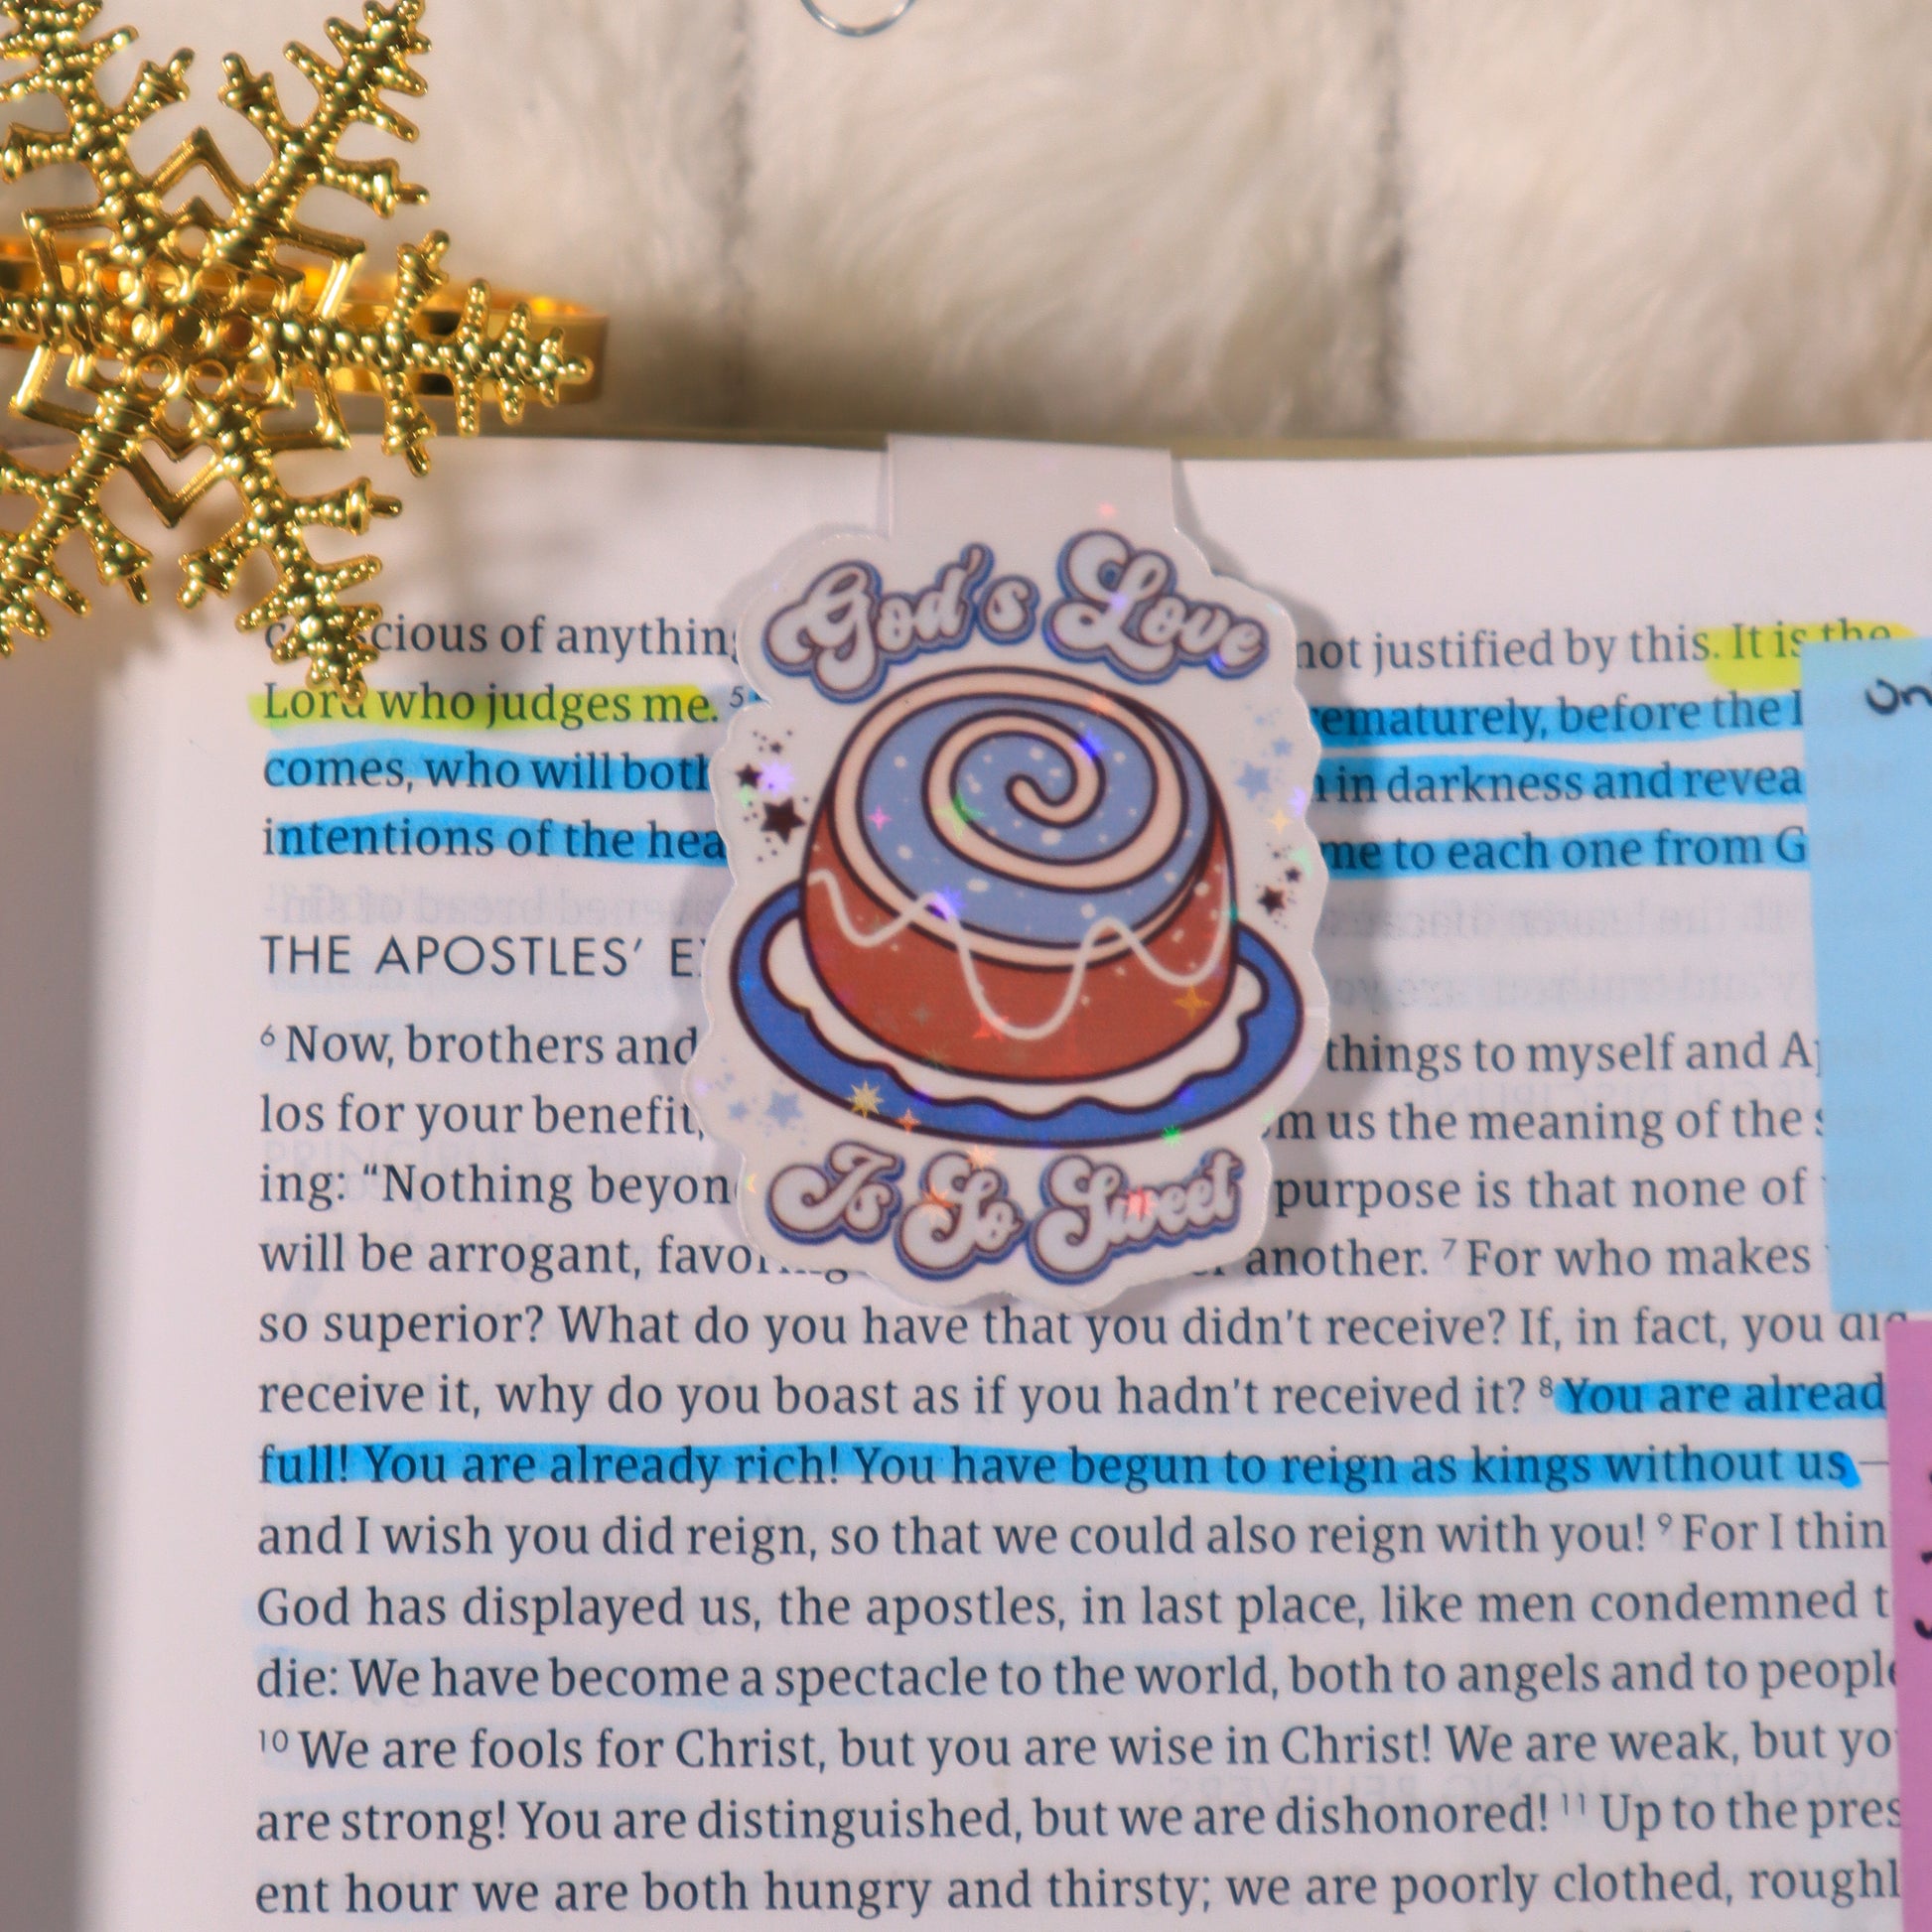 God's Love
Is So Sweet
cious of anything not justified by this. It is the
Lord who judges me. 5 prematurely, before the
comes, who will both in darkness and revea
intentions of the hea me to each one from G
THE APOSTLES'
6 Now, brothers and things to myself and Ap
los for your benefit, us the meaning of the
ing: “Nothing beyon purpose is that none of
will be arrogant, another. 7 For who makes
so superior? What do you have that you didn't receive? If, in fact, you did
receive it, why do you boast as if you hadn't received it? 8 You are alread
full! You are already rich! You have begun to reign as kings without us—
and I wish you did reign, so that we could also reign with you! 9 For I thin
God has displayed us, the apostles, in last place, like men condemned t
die: We have become a spectacle to the world, both to angels and to people
10 We are fools for Christ, but you are wise in Christ! We are weak, but yo
are strong! You are distinguished, but we are dishonored! 11 Up to the pres
ent hour we are both hungry and thirsty; we are poorly clothed, roughl